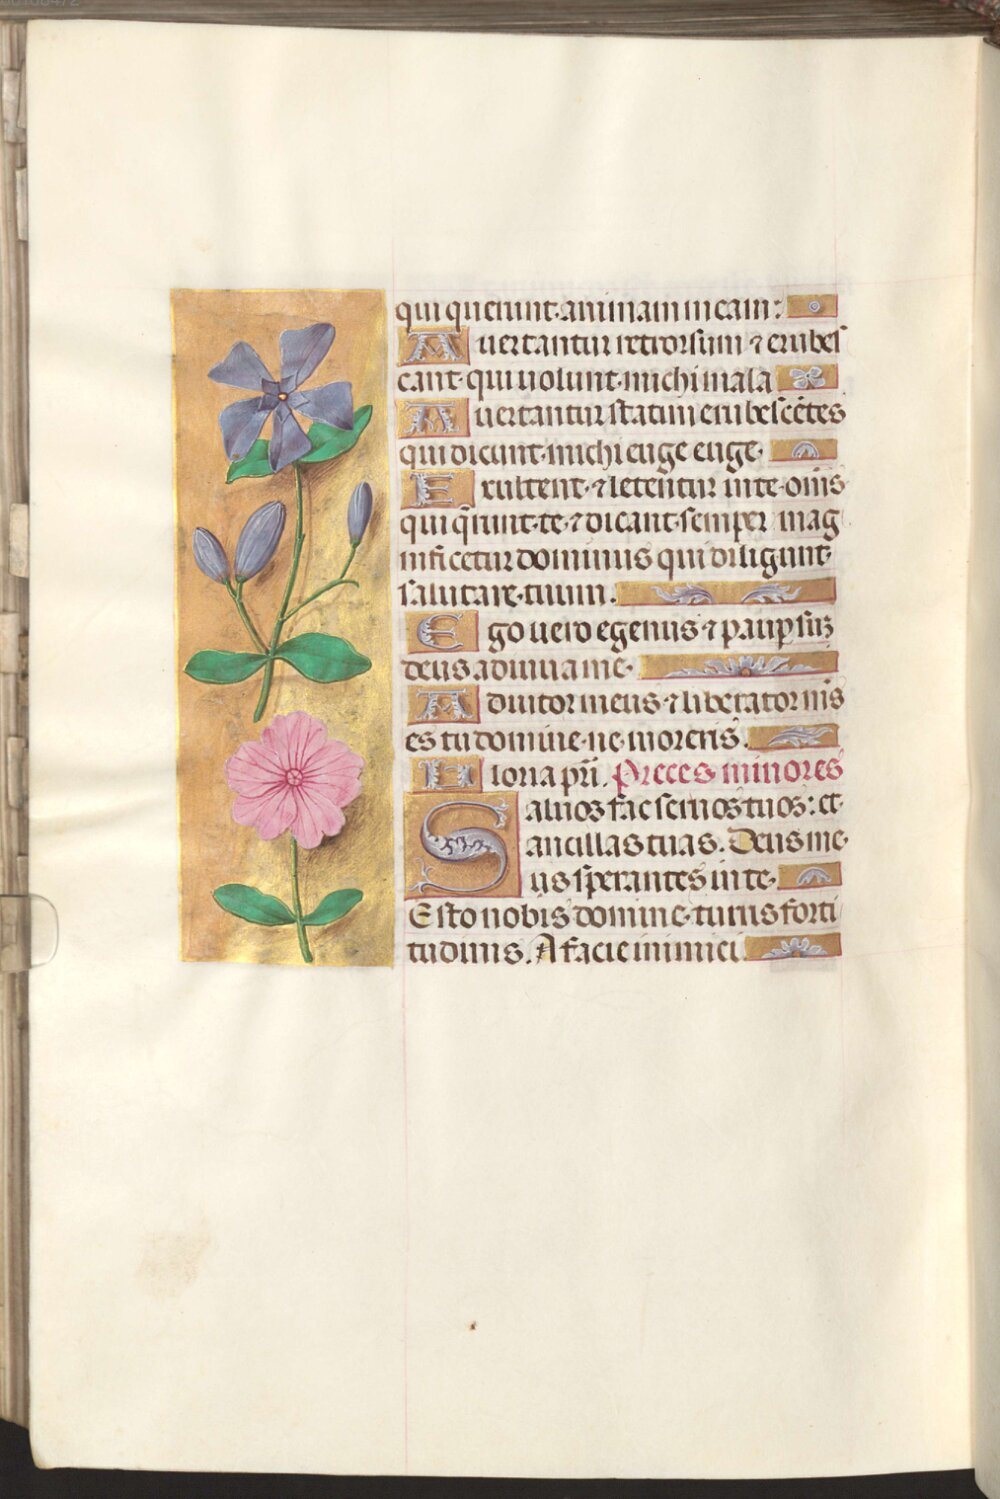 qui querunt animam meam:
Auertantur retrorsum ⁊ erubes
cant qui uolunt michi mala
Auertantur statim erubescētes
qui dicunt michi euge euge.
Exultent ⁊ letentur in te om̄s
qui q̄runt te ⁊ dicant semper mag
nificetur dominus qui diligunt
salutare tuum.
Ego uero egenus ⁊ paup̲ sūz
deus adiuua me.
Adiutor meus ⁊ liberator m̄s
es tu domine ne moreris.
Gloria pr̄i. Preces minores
Saluos fac seruos tuos: et
ancillas tuas. Deus me
us sperantes in te.
Esto nobis domine turris forti
tudinis. A facie inimici